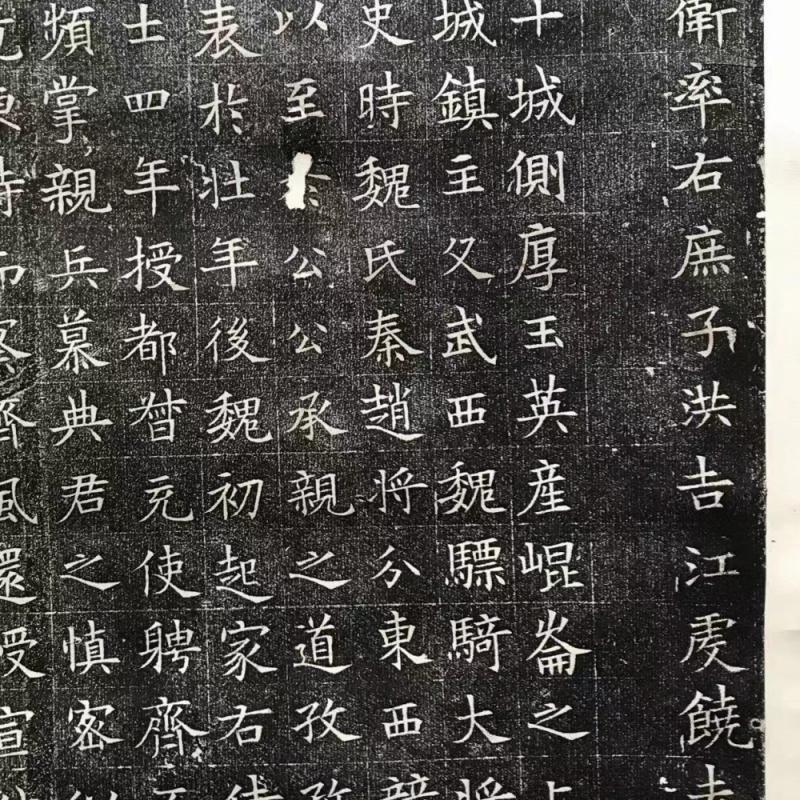 衛率右庶子洪吉江虔饒
十城側厚玉英產崐崙之上
城鎮主父武西魏驃騎大將
史時魏氏秦趙將分東西
以至於公公承親之道孜孜
表於壯年後魏初起家右
士四年授都督充使聘齊
頻掌親兵慕典君之慎密
而察齊風還授宣